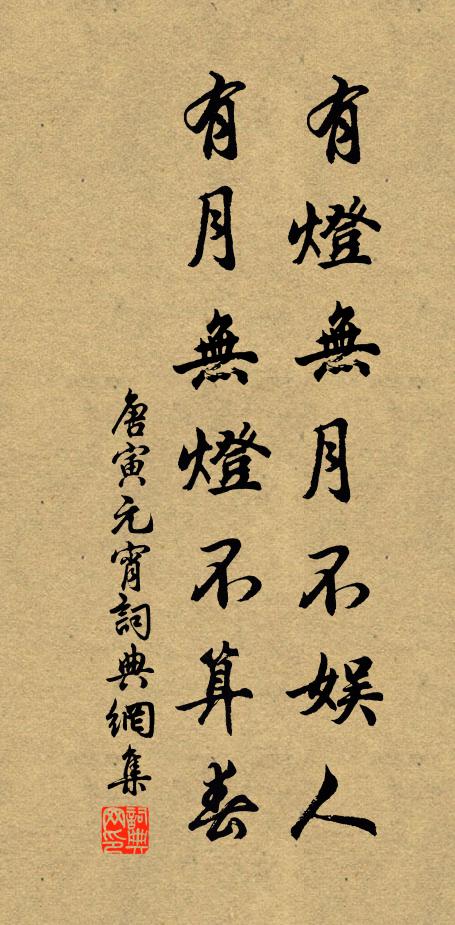 有燈無月不娛人
有月無燈不算春
唐寅元宵詞典網集
詞典网印